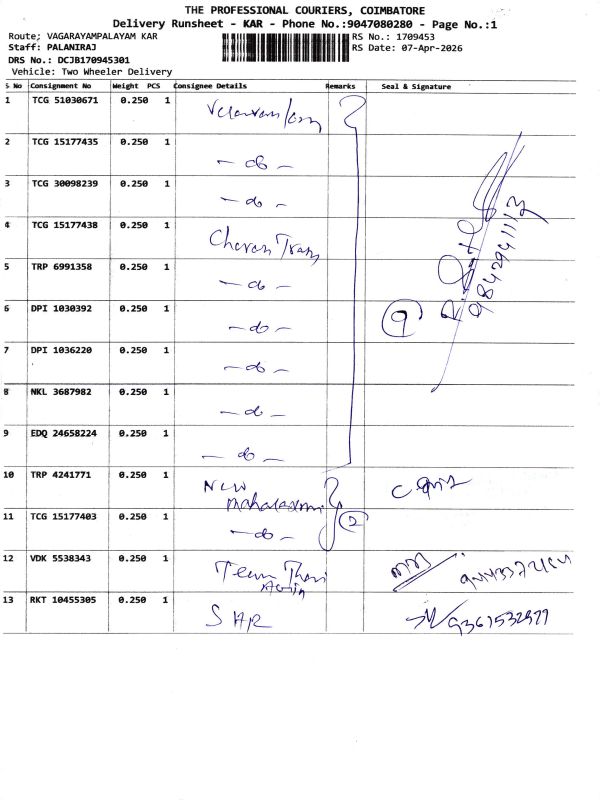 THE PROFESSIONAL COURIERS, COIMBATORE
Delivery Runsheet - KAR - Phone No.:9047080280 - Page No.:1
Route; VAGARAYAMPALAYAM KAR RS No.: 1709453
Staff: PALANIRAJ RS Date: 07-Apr-2026
DRS No.: DCJB170945301
Vehicle: Two Wheeler Delivery
S No Consignment No Weight PCS Consignee Details Remarks Seal & Signature
1 TCG 51030671 0.250 1
2 TCG 15177435 0.250 1 - do -
3 TCG 30098239 0.250 1 - do -
4 TCG 15177438 0.250 1 Cheran Trans
5 TRP 6991358 0.250 1 - do -
6 DPI 1030392 0.250 1 - do - 9
7 DPI 1036220 0.250 1 - do -
8 NKL 3687982 0.250 1 - do -
9 EDQ 24658224 0.250 1 - do -
9842941113
10 TRP 4241771 0.250 1 New
Mahalaxmi
11 TCG 15177403 0.250 1 - do - 2
12 VDK 5538343 0.250 1 Team Thai
13 RKT 10455305 0.250 1 S HR 9361532977